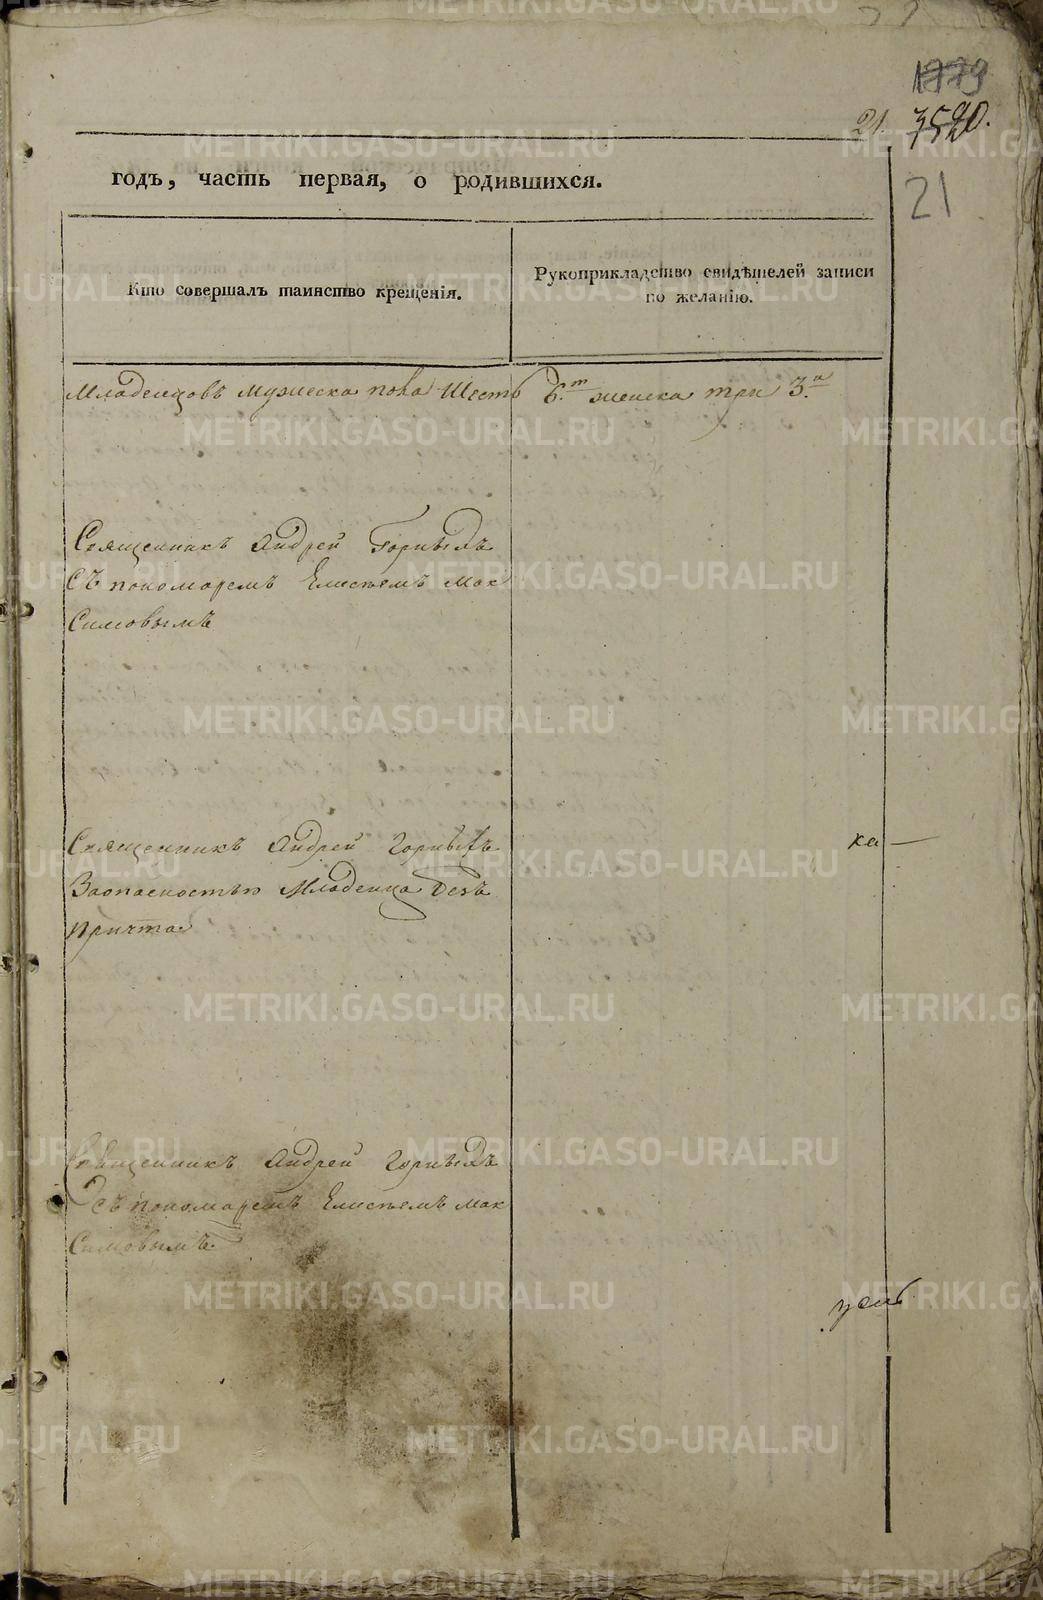 1779
21. 3520.
21
годъ, часть первая, о родившихся.
Кто совершалъ таинство крещенія.
Рукоприкладство свидѣтелей записи
по желанію.
Младенцовъ мужеска пола Шесть 6.т женска три 3.и
Священникъ Андрей Горныхъ
Съ пономаремъ Елисѣемъ Мак
Симовымъ
Священникъ Андрей Горныхъ
Заопасностью Младенца безъ
причта
ка —
Священникъ Андрей Горныхъ
Съ пономаремъ Елисѣемъ Мак
Симовымъ
METRIKI.GASO-URAL.RU